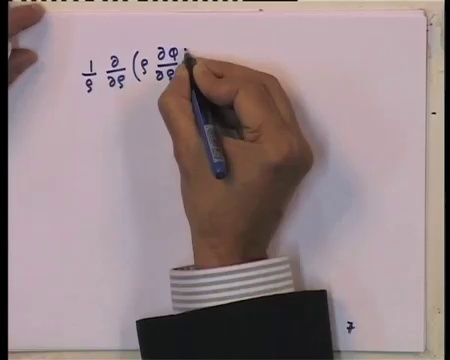 1/ρ ∂/∂ρ (ρ ∂φ/∂ρ
7